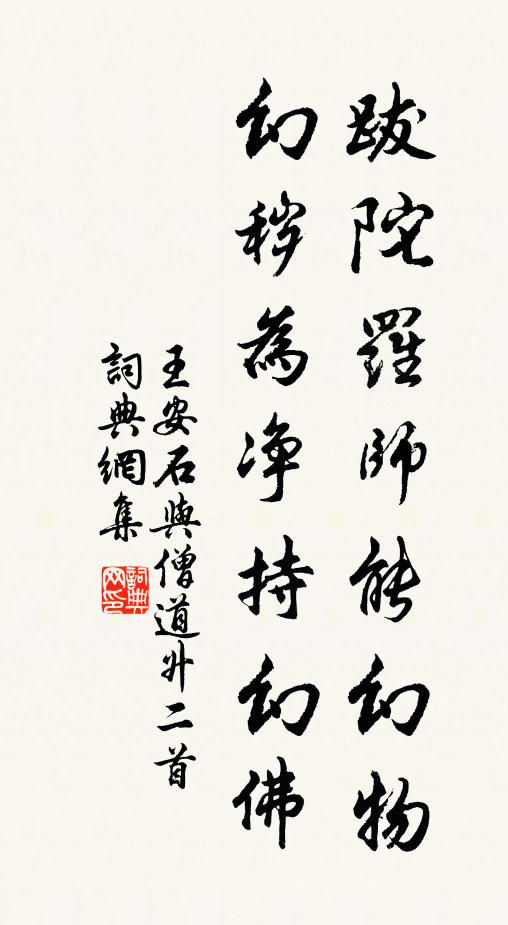 跋陀羅師能幻物
幻穢為净持幻佛
王安石與僧道升二首
詞典網集
詞典網印